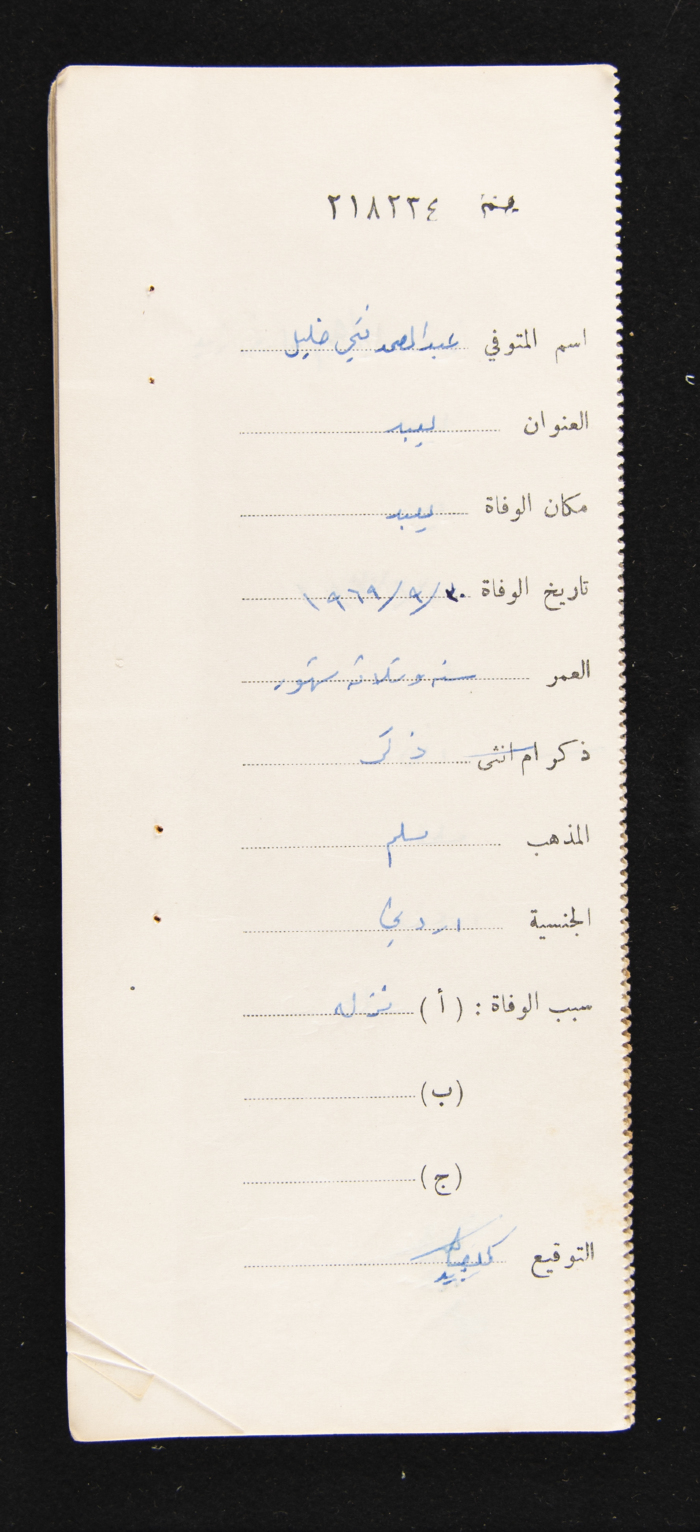 ٢١٨٢٣٤
اسم المتوفي عبد الصمد فتحي خليل
العنوان يعبد
مكان الوفاة يعبد
تاريخ الوفاة ٣٠/٩/١٩٦٩
العمر سنه وثلاثه شهور
ذكر ام انثى ذكر
المذهب مسلم
الجنسية اردني
سبب الوفاة : (أ) نزله
(ب)
(ج)
التوقيع